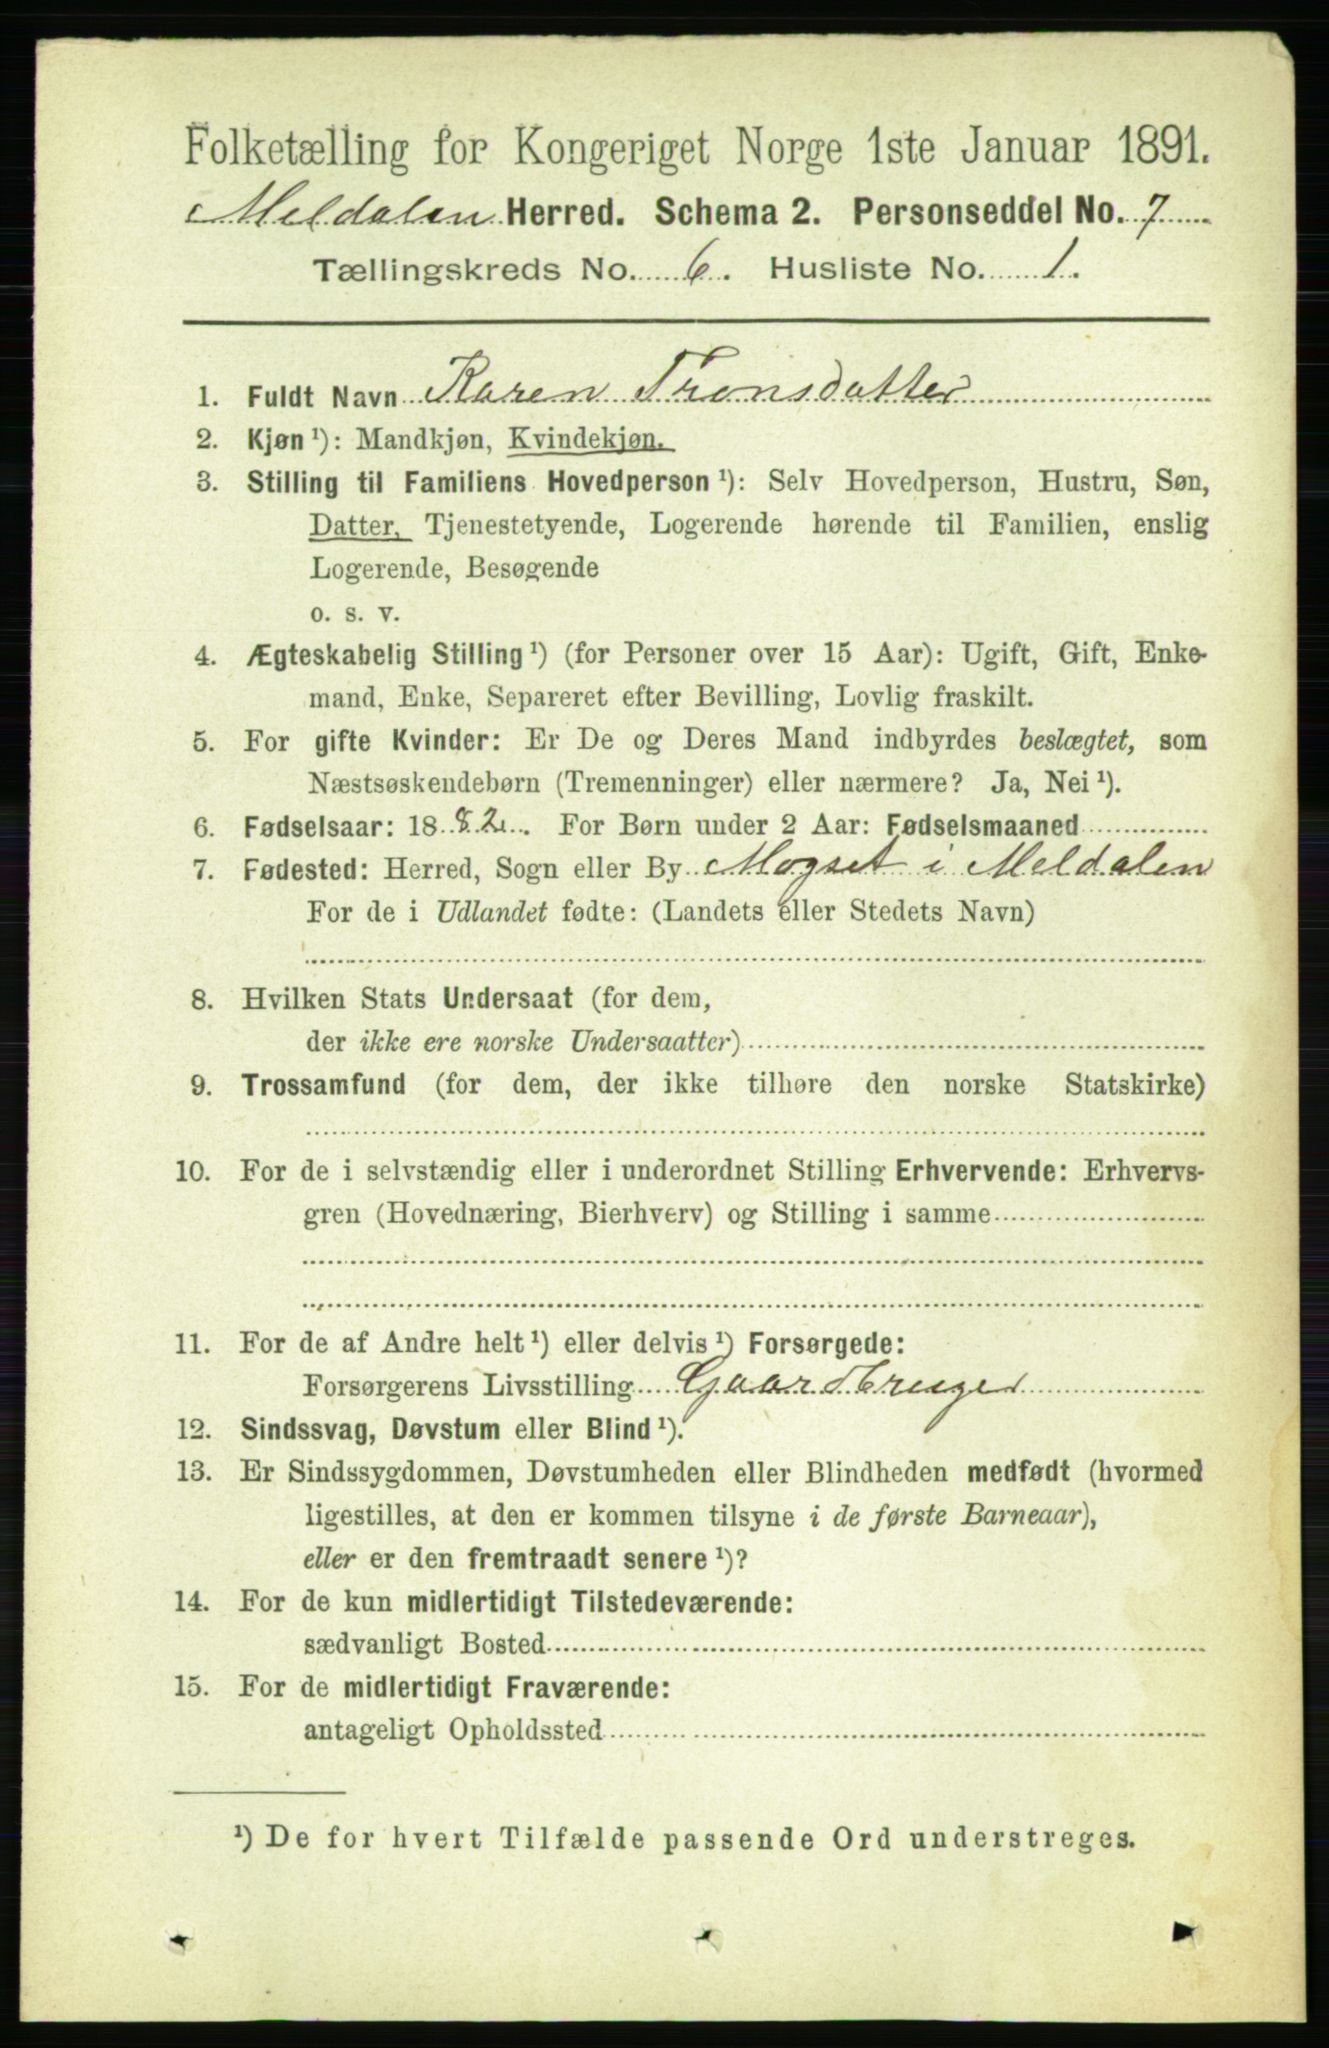 Folketælling for Kongeriget Norge 1ste Januar 1891.
Meldalen Herred. Schema 2. Personseddel No. 7
Tællingskreds No. 6. Husliste No. 1.
1. Fuldt Navn Karen Tronsdatter
2. Kjøn ¹): Mandkjøn, Kvindekjøn.
3. Stilling til Familiens Hovedperson ¹): Selv Hovedperson, Hustru, Søn,
Datter, Tjenestetyende, Logerende hørende til Familien, enslig
Logerende, Besøgende
o. s. v.
4. Ægteskabelig Stilling ¹) (for Personer over 15 Aar): Ugift, Gift, Enke-
mand, Enke, Separeret efter Bevilling, Lovlig fraskilt.
5. For gifte Kvinder: Er De og Deres Mand indbyrdes beslægtet, som
Næstsøskendebørn (Tremenninger) eller nærmere? Ja, Nei ¹).
6. Fødselsaar: 1882. For Børn under 2 Aar: Fødselsmaaned
7. Fødested: Herred, Sogn eller By Mogset i Meldalen
For de i Udlandet fødte: (Landets eller Stedets Navn)
8. Hvilken Stats Undersaat (for dem,
der ikke ere norske Undersaatter)
9. Trossamfund (for dem, der ikke tilhøre den norske Statskirke)
10. For de i selvstændig eller i underordnet Stilling Erhvervende: Erhvervs-
gren (Hovednæring, Bierhverv) og Stilling i samme
11. For de af Andre helt ¹) eller delvis ¹) Forsørgede:
Forsørgerens Livsstilling Gaardbruger
12. Sindssvag, Døvstum eller Blind ¹).
13. Er Sindssygdommen, Døvstumheden eller Blindheden medfødt (hvormed
ligestilles, at den er kommen tilsyne i de første Barneaar),
eller er den fremtraadt senere ¹)?
14. For de kun midlertidigt Tilstedeværende:
sædvanligt Bosted
15. For de midlertidigt Fraværende:
antageligt Opholdssted
¹) De for hvert Tilfælde passende Ord understreges.